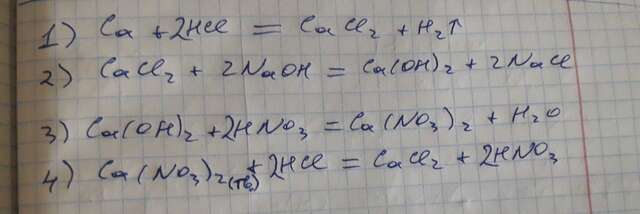 1) Ca + 2HCl = CaCl₂ + H₂↑
2) CaCl₂ + 2NaOH = Ca(OH)₂ + 2NaCl
3) Ca(OH)₂ + 2HNO₃ = Ca(NO₃)₂ + H₂O
4) Ca(NO₃)₂(тв.) + 2HCl = CaCl₂ + 2HNO₃